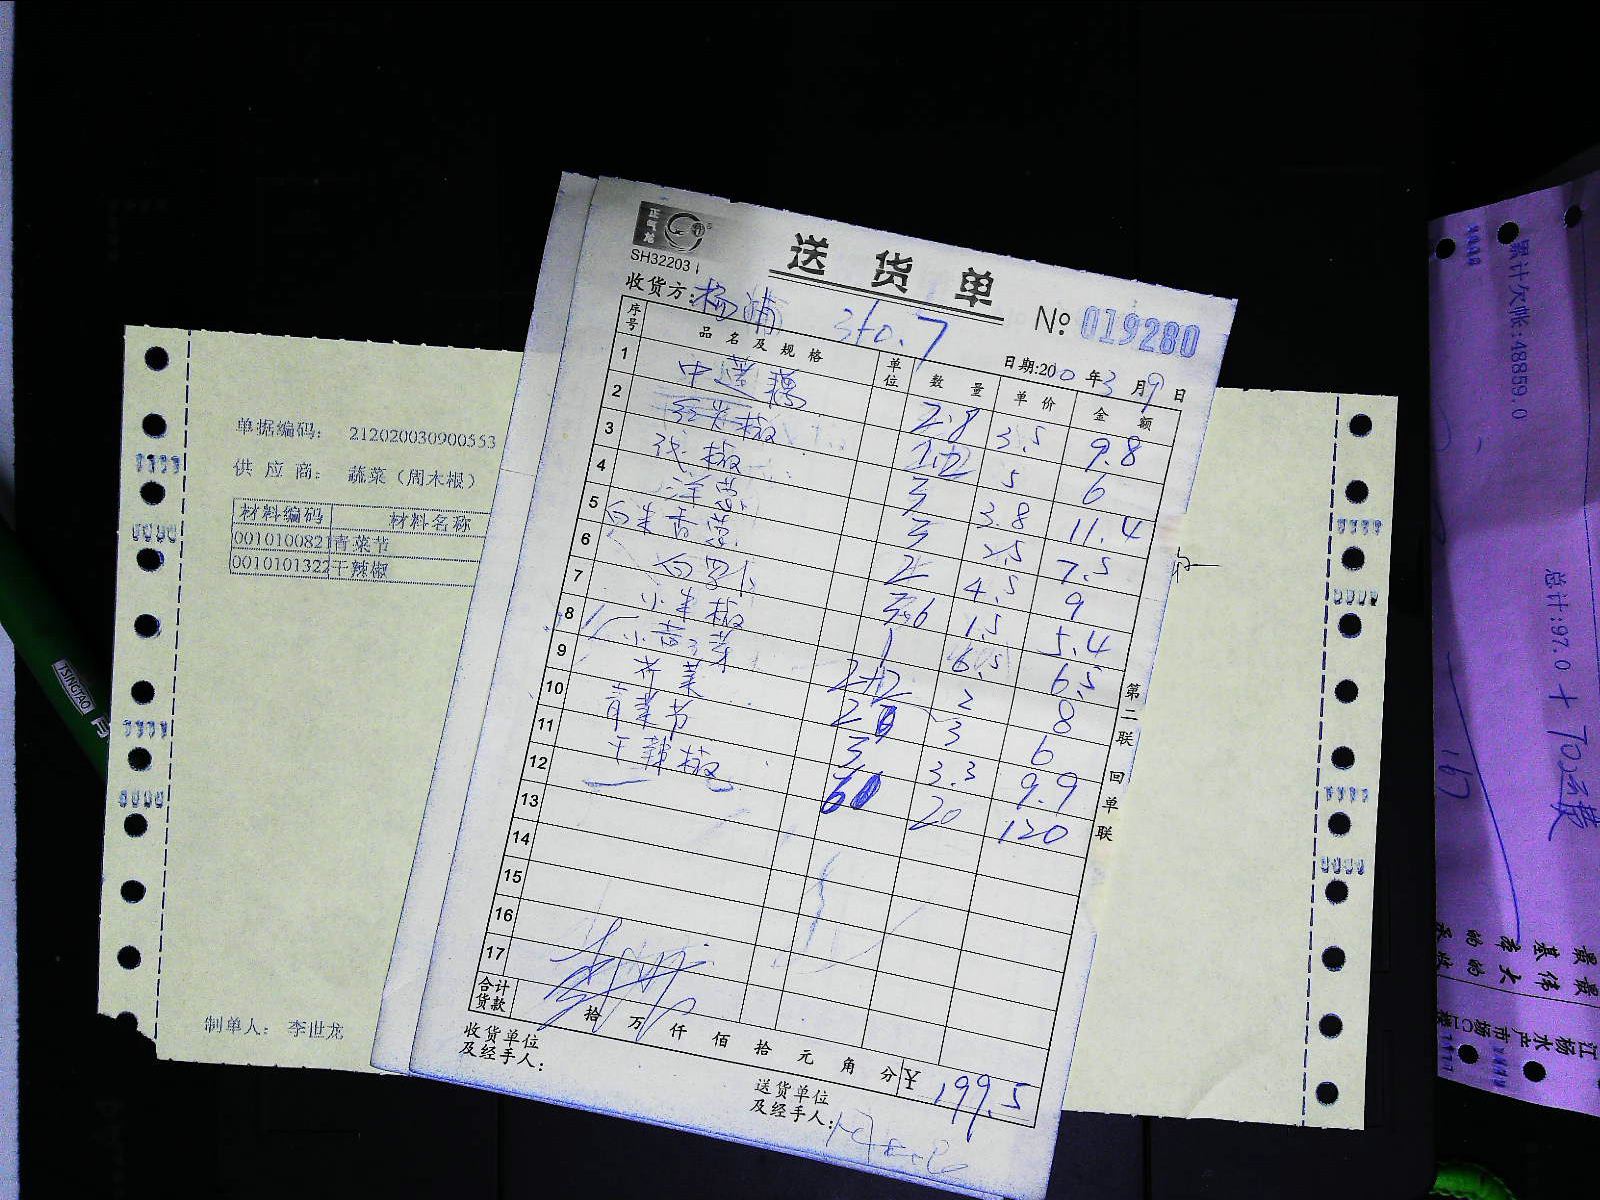 正气龙
SH32203
送货单
收货方: 杨浦
No 019280
日期:20 0 年 3 月 9 日
序号 品名及规格 单位 数量 单价 金额
1 中莲藕 2.8 3.5 9.8
2 5 6
3 椒 3 3.8 11.4
4 洋葱 3 2.5 7.5
5 2 4.5 9
6 3.6 1.5 5.4
7 小米椒 1 6.5 6.5
8 2 8
9 芹菜 2 3 6
10 青菜节 3 3.3 9.9
11 干辣椒 6 20 120
12
13
14
15
16
17
合计货款 拾 万 仟 佰 拾 元 角 分 ¥ 199.5
收货单位
及经手人:
送货单位
及经手人:
第二联 回单联
单据编码: 212020030900553
供应商: 蔬菜（周木根）
材料编码 材料名称
0010100821 青菜节
0010101322 干辣椒
制单人: 李世龙
TSINGTAO
累计欠帐:48859.0
总计:97.0 + 70运费
167